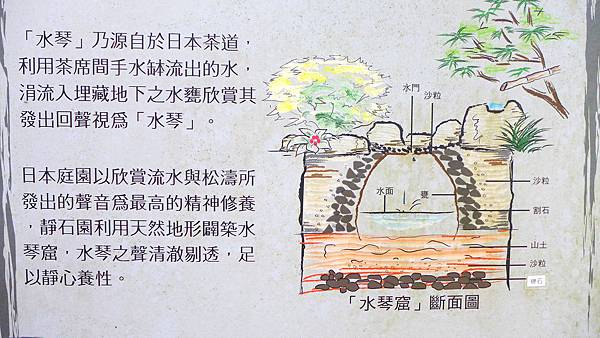 「水琴」乃源自於日本茶道，
利用茶席間手水缽流出的水，
涓流入埋藏地下之水甕欣賞其
發出回聲視爲「水琴」。
日本庭園以欣賞流水與松濤所
發出的聲音爲最高的精神修養
，靜石園利用天然地形闢築水
琴窟，水琴之聲清澈剔透，足
以靜心養性。
水門
沙粒
水面
甕
沙粒
割石
山土
沙粒
「水琴窟」斷面圖